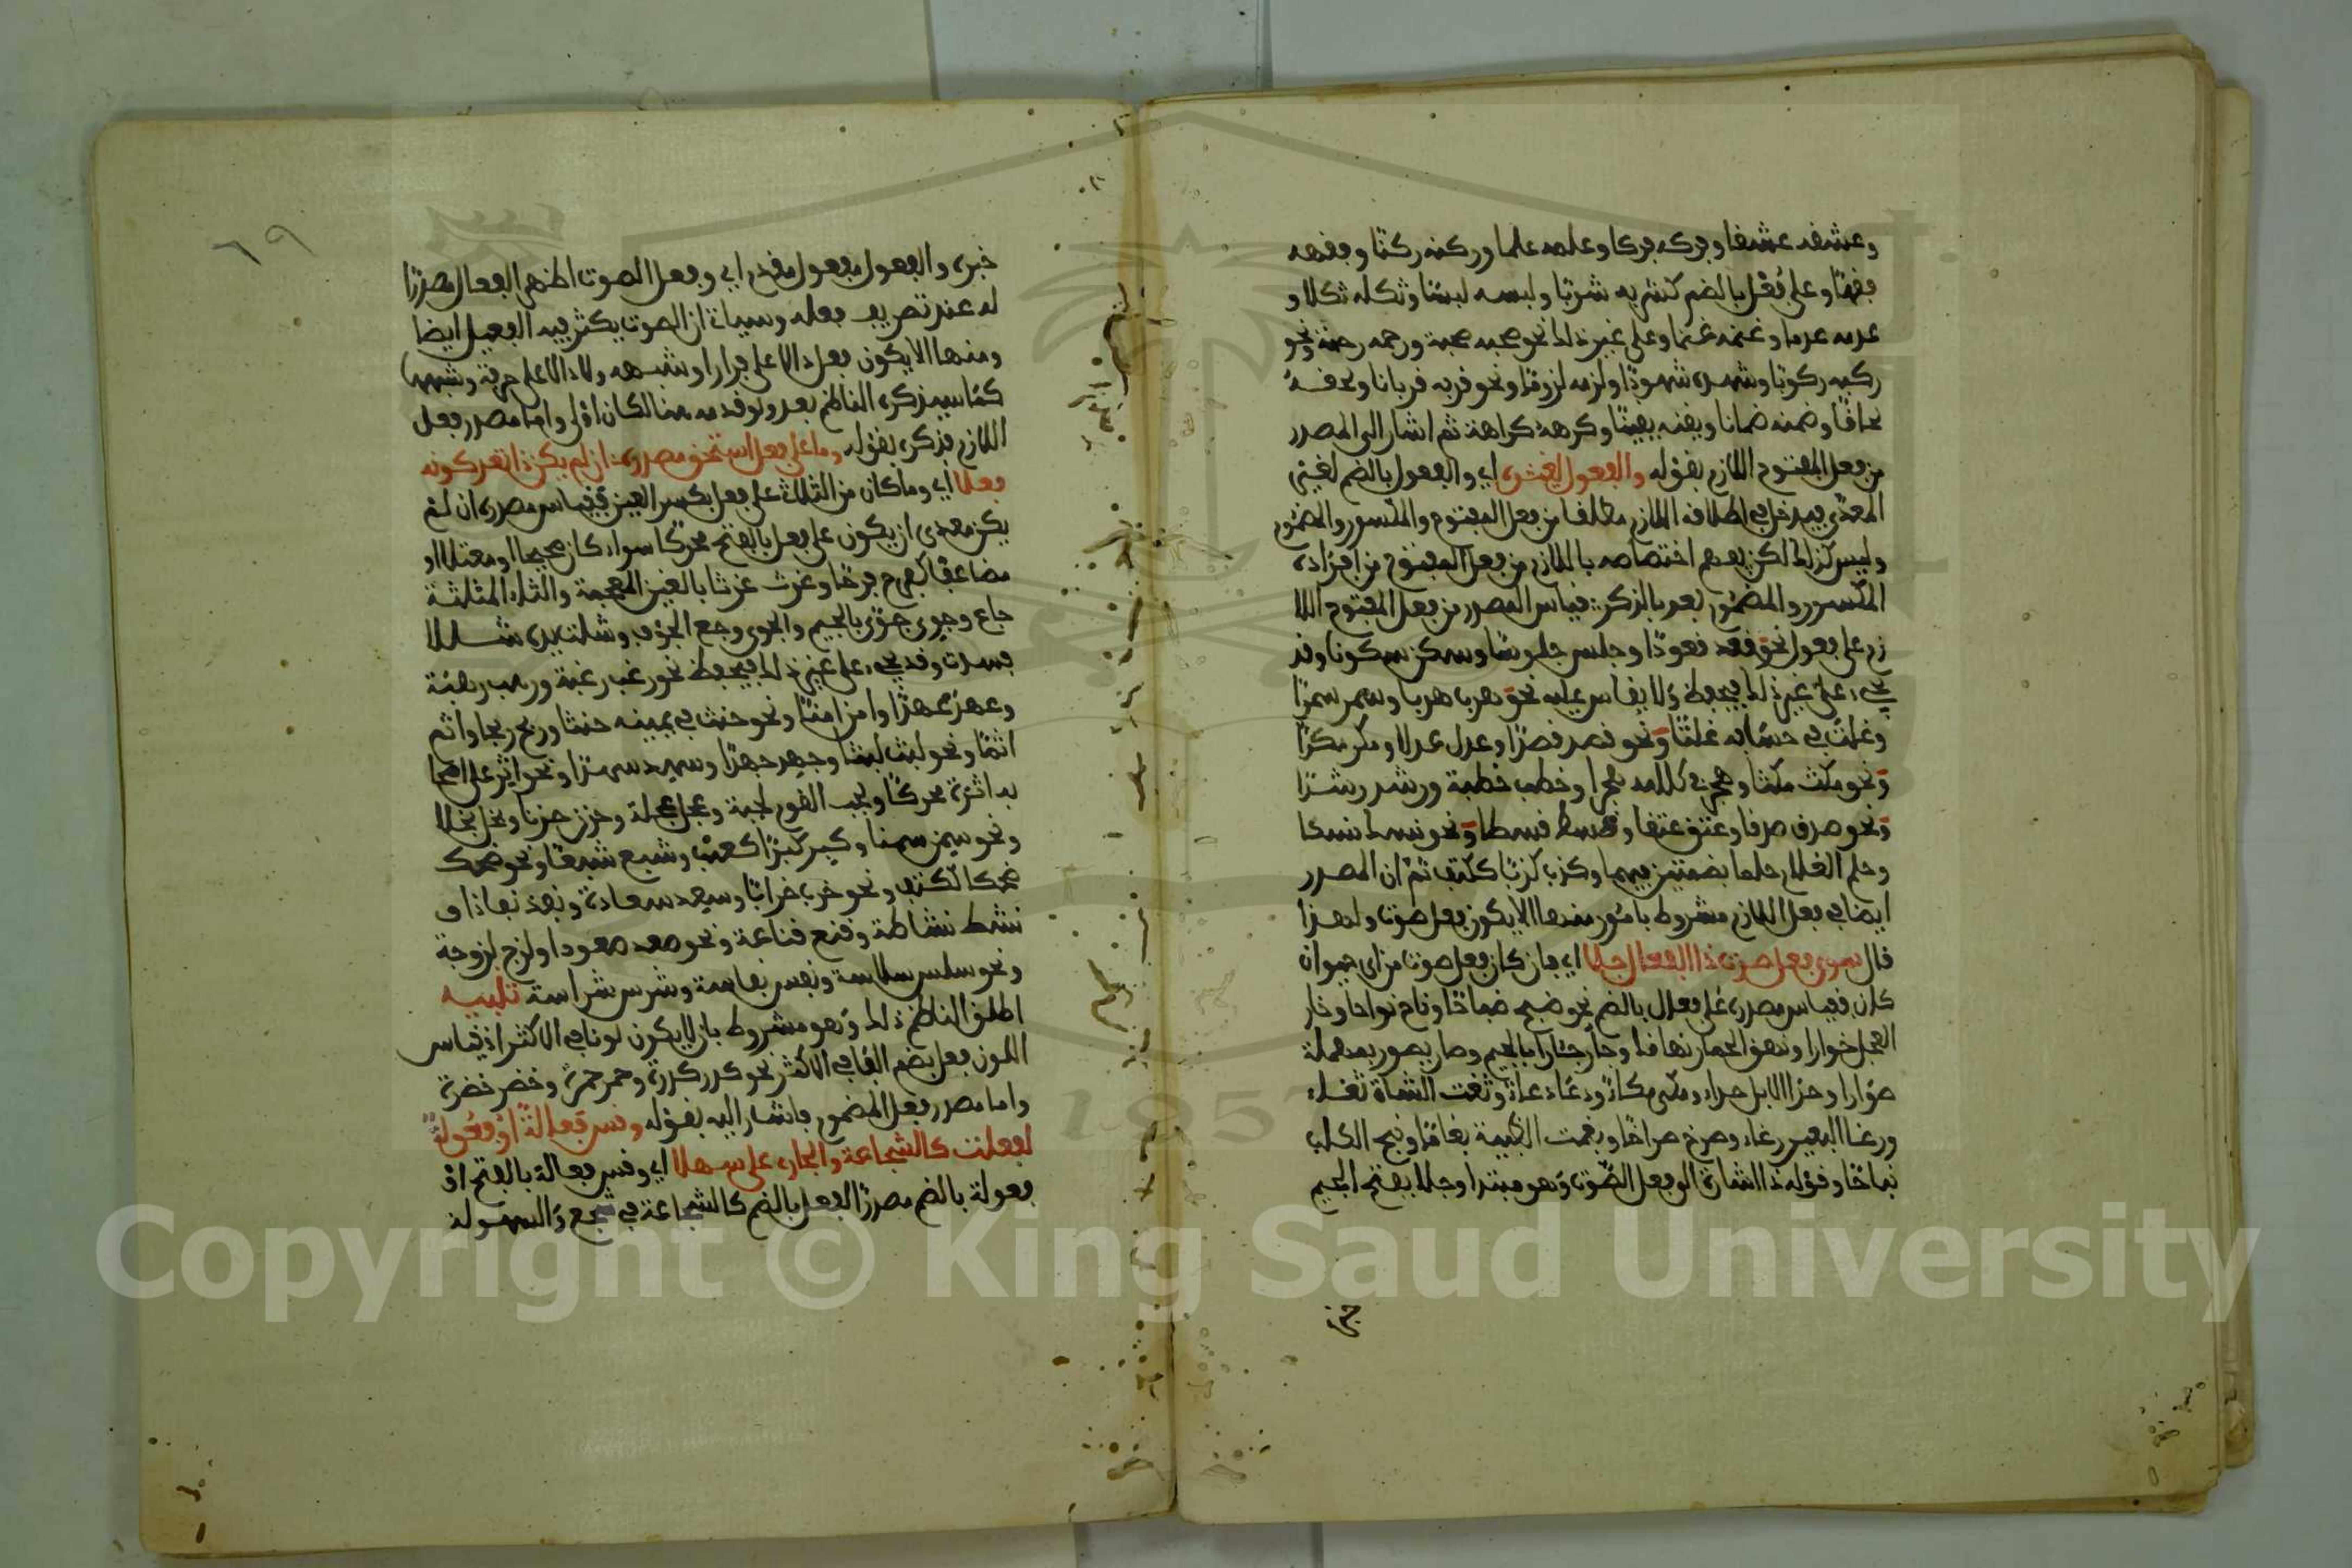 وعشقه عشقا وفركه فركا وعلمه علما وركنه ركنا وفقهه
فقها وعلى فُعْل بالضم كشربه شربا ولبسه لبسا وثكله ثكلا و
عدمه عدما وغنمه غنما وعلى غير ذلك نحو صحبه صحبة ورحمه رحمة ونحو
ركبه ركوبا وشهده شهودا ولزمه لزوما ونحو قربه قربانا ولحفه
لحافا وضمنه ضمانا ويقنه يقينا وكرهه كراهة ثم اشار الى المصدر
من فعل المفتوح اللازم بقوله والفعول لغيره اي والفعول بالضم لغير
المعدى فيدخل في اطلاقه اللازم مطلقا من فعل المفتوح والمكسور والمضموم
وليس كذلك لكن يفهم اختصاصه باللازم من فعل المفتوح من افراده
المكسور والمضموم بعد بالذكر فقياس المصدر من فعل المفتوح اللا
زم على فعول نحو قعد قعودا وجلس جلوسا وسكن سكونا وقد
يجيء على غير ذلك فيحفظ ولا يقاس عليه نحو هرب هربا وسمر سمرا
وغلت في حسابه غلتا ونحو قصد قصدا وعدل عدلا ومكر مكرا
ونحو مكث مكثا وهجر في كلامه هجرا وخطب خطبة ورشد رشدا
ونحو صدق صدقا وعتق عتقا وقسط قسطا ونحو نسك نسكا
وحلم الغلام حلما بضمتين فيهما وكذب كذبا ككتف ثم ان المصدر
ايضا في فعل اللازم مشروط بامور منها الا يكون فعل صوت ولهذا
قال سوى فعل صوت ذا الفعال جلا اي فان كان فعل صوت من اي حيوان
كان فقياس مصدره على فعال بالضم نحو ضبح ضباحا وناح نواحا وخار
العجل خوارا ونهق الحمار نهاقا وجأر جئارا بالجيم وصار يصور بمهملة
صوارا وحدا الابل حداء ومكى مكاء ودعاء وثغت الشاة ثغاء
ورغا البعير رغاء وصرخ صراخا وبغمت الظبية بغاما ونبح الكلب
نباحا وقوله ذا اشارة الى فعل الصوت وهو مبتدا وجلا بفتح الجيم
خبره والفعول مفعول مقدم اي وفعل الصوت اظهر الفعال مصدرا
له عند تصريف فعله وسياتي ان الصوت يكثر فيه الفعيل ايضا
ومنها الا يكون فعل دالا على فرار او شبهه ولا دالا على حرفة وشبهها
كما سيذكره الناظم بعد ولو قدمه هنا لكان اولى واما مصدر فعل
اللازم فذكره بقوله وما على فعل استحق مصدره ان لم يكن ذا تعد كونه
فعلا اي وما كان من الثلاثي على فعل بكسر العين فقياس مصدره ان لم
يكن معدى ان يكون على فعل بالفتح محركا سواء كان صحيحا او معتلا او
مضاعفا كفرح فرحا وغرث غرثا بالغين المعجمة والثاء المثلثة
جاع وجوي جوى بالجيم والجوى وجع الجوف وشلت يده شللا
فسدت وقد يجيء على غير ذلك فيحفظ نحو رغب رغبة ورهب رهبة
وعهر عهرا وامن امنا ونحو حنث في يمينه حنثا وربح ربحا واثم
اثما ونحو لبث لبثا وجهد جهدا وسهد سهدا ونحو اثر على اصحا
به اثرة محركا ولجب القوم لجبة وعجل عجلة وحزن حزنا وبخل بخلا
ونحو سمن سمنا وكبر كبرا كعنب وشبع شبعا ونحو ضحك
ضحكا ككتف ونحو خرب خرابا وسعد سعادة ونفذ نفاذا و
نشط نشاطة وقنع قناعة ونحو صعد صعودا ولزج لزوجة
ونحو سلس سلاسة ونفس نفاسة وشرس شراسة تنبيه
اطلق الناظم ذلك وهو مشروط بان لا يكون لونا في الاكثر اذ قياس
اللون فعل بضم الفا في الاكثر نحو كدر كدرة وحمر حمرة وخضر خضرة
واما مصدر فعل المضموم فاشار اليه بقوله وقس فعالة او فعولة
لفعلت كالشجاعة والجاري على سهلا اي وقس فعالة بالفتح او
فعولة بالضم مصدرا لفعل بالضم كالشجاعة في شجع والسهولة